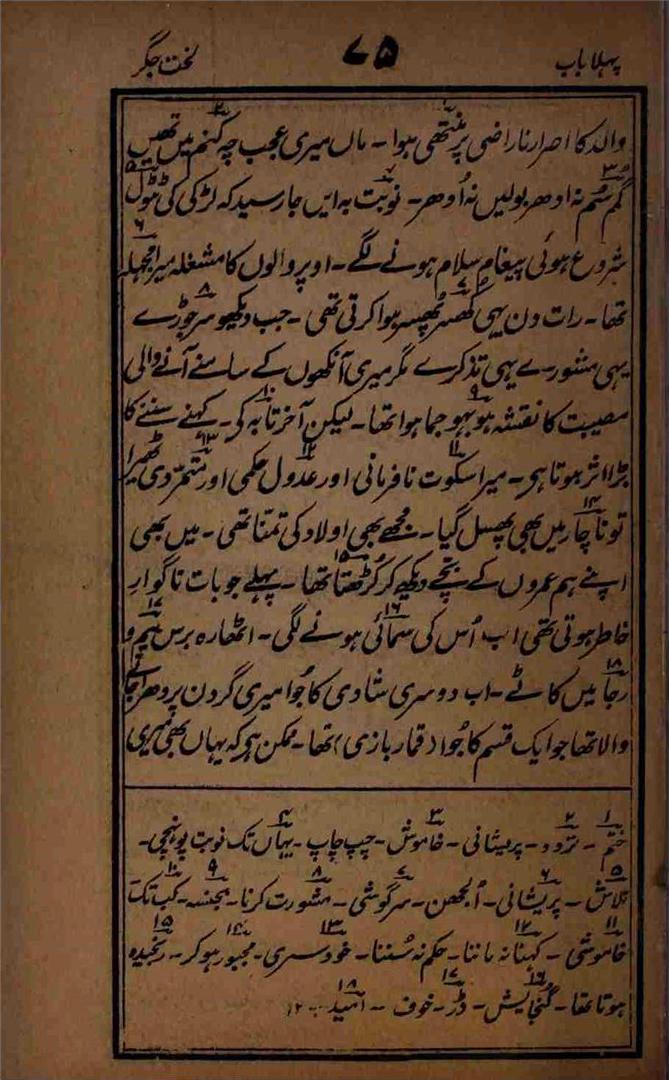 پہلا باب ۷۵ لخت جگر
والد کا اصرار ناراضی پر منتہی ہوا۔ ماں میری عجب چہ کنم میں تھیں
گم سُم نہ ادھر بولیں نہ اُدھر۔ نوبت بہ ایں جا رسید کہ لڑکی کی ٹٹول
شروع ہوئی پیغام سلام ہونے لگے۔ اوپر والوں کا مشغلہ میرا مجھلہ
تھا۔ رات دن یہی گھُسر پھُسر ہوا کرتی تھی۔ جب دیکھو سر جوڑے
یہی مشورے یہی تذکرے مگر میری آنکھوں کے سامنے آنے والی
مصیبت کا نقشہ ہو بہو جما ہوا تھا۔ لیکن آخر تا بہ کی۔ کہنے سننے کا
بڑا اثر ہوتا ہی۔ میرا سکوت نافرمانی اور عدول حکمی اور متمردی ٹھیرا
تو ناچار میں بھی پھسل گیا۔ مجھے بھی اولاد کی تمنّا تھی۔ میں بھی
اپنے ہم عمروں کے بچے دیکھ کر کُڑھتا تھا۔ پہلے جو بات ناگوارِ
خاطر ہوتی تھی اب اُس کی سمائی ہونے لگی۔ اٹھارہ برس بیم و
رجا میں کاٹے۔ اب دوسری شادی کا جُوا میری گردن پر دھرا جانے
والا تھا جو ایک قسم کا جُوا (قمار بازی) تھا۔ ممکن ہو کہ یہاں بھی میری
۱ ختم۔ ۲ تردد۔ پریشانی۔ ۳ خاموش۔ چپ چاپ۔ ۴ یہاں تک نوبت پونہچی۔
۵ تلاش۔ ۶ پریشانی۔ اُلجھن۔ ۷ سرگوشی۔ ۸ مشورت کرنا۔ ۹ بجنسہ۔ ۱۰ کب تک
۱۱ خاموشی۔ ۱۲ کہنا نہ ماننا۔ حکم نہ سُننا۔ ۱۳ خودسری۔ ۱۴ مجبور ہو کر۔ ۱۵ رنجیدہ
ہوتا تھا۔ ۱۶ گنجایش۔ ۱۷ ڈر۔ خوف۔ ۱۸ امید۔ ۱۲